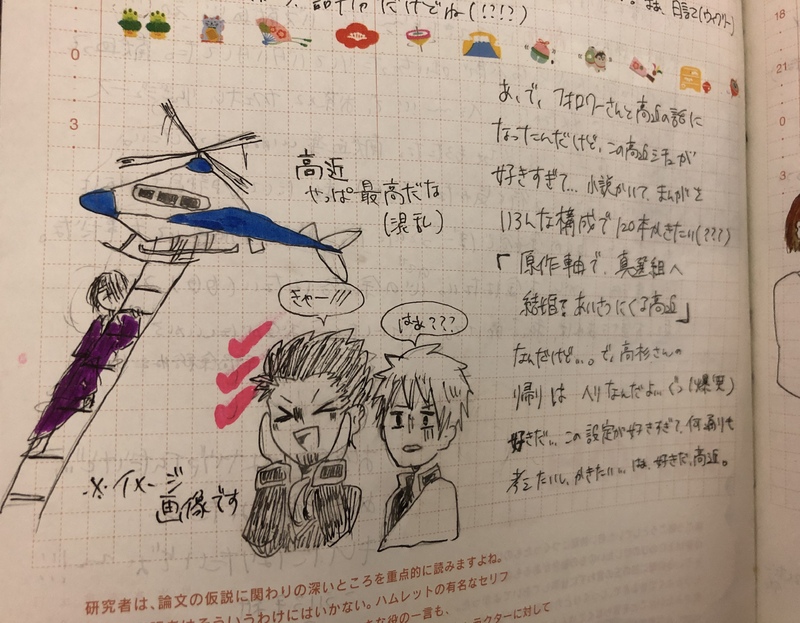 だけどね(!?!?)
まあ、日記(ウィークリー)
0
3
18
21
0
3
あ、で、フォロワーさんと高近の話に
なったんだけど、この高近シチュが
好きすぎて… 小説かいて、まんがを
いろんな構成で120本かきたい(???)
「原作軸で、真選組へ
結婚のあいさつにくる高近」
なんだけど…。で、高杉さんの
帰りは ヘリなんだよ…(爆笑)
好きだ… この設定が好きすぎて、何通りも
考えたいし、かきたい… はぁ、好きだ、高近。
高近
やっぱ最高だな
(混乱)
きゃー!!!
はぁ???
※イメージ
画像です
研究者は、論文の仮説に関わりの深いところを重点的に読みますよね。
そういうわけにはいかない。ハムレットの有名なセリフ
な役の一言も、
ラクターに対して